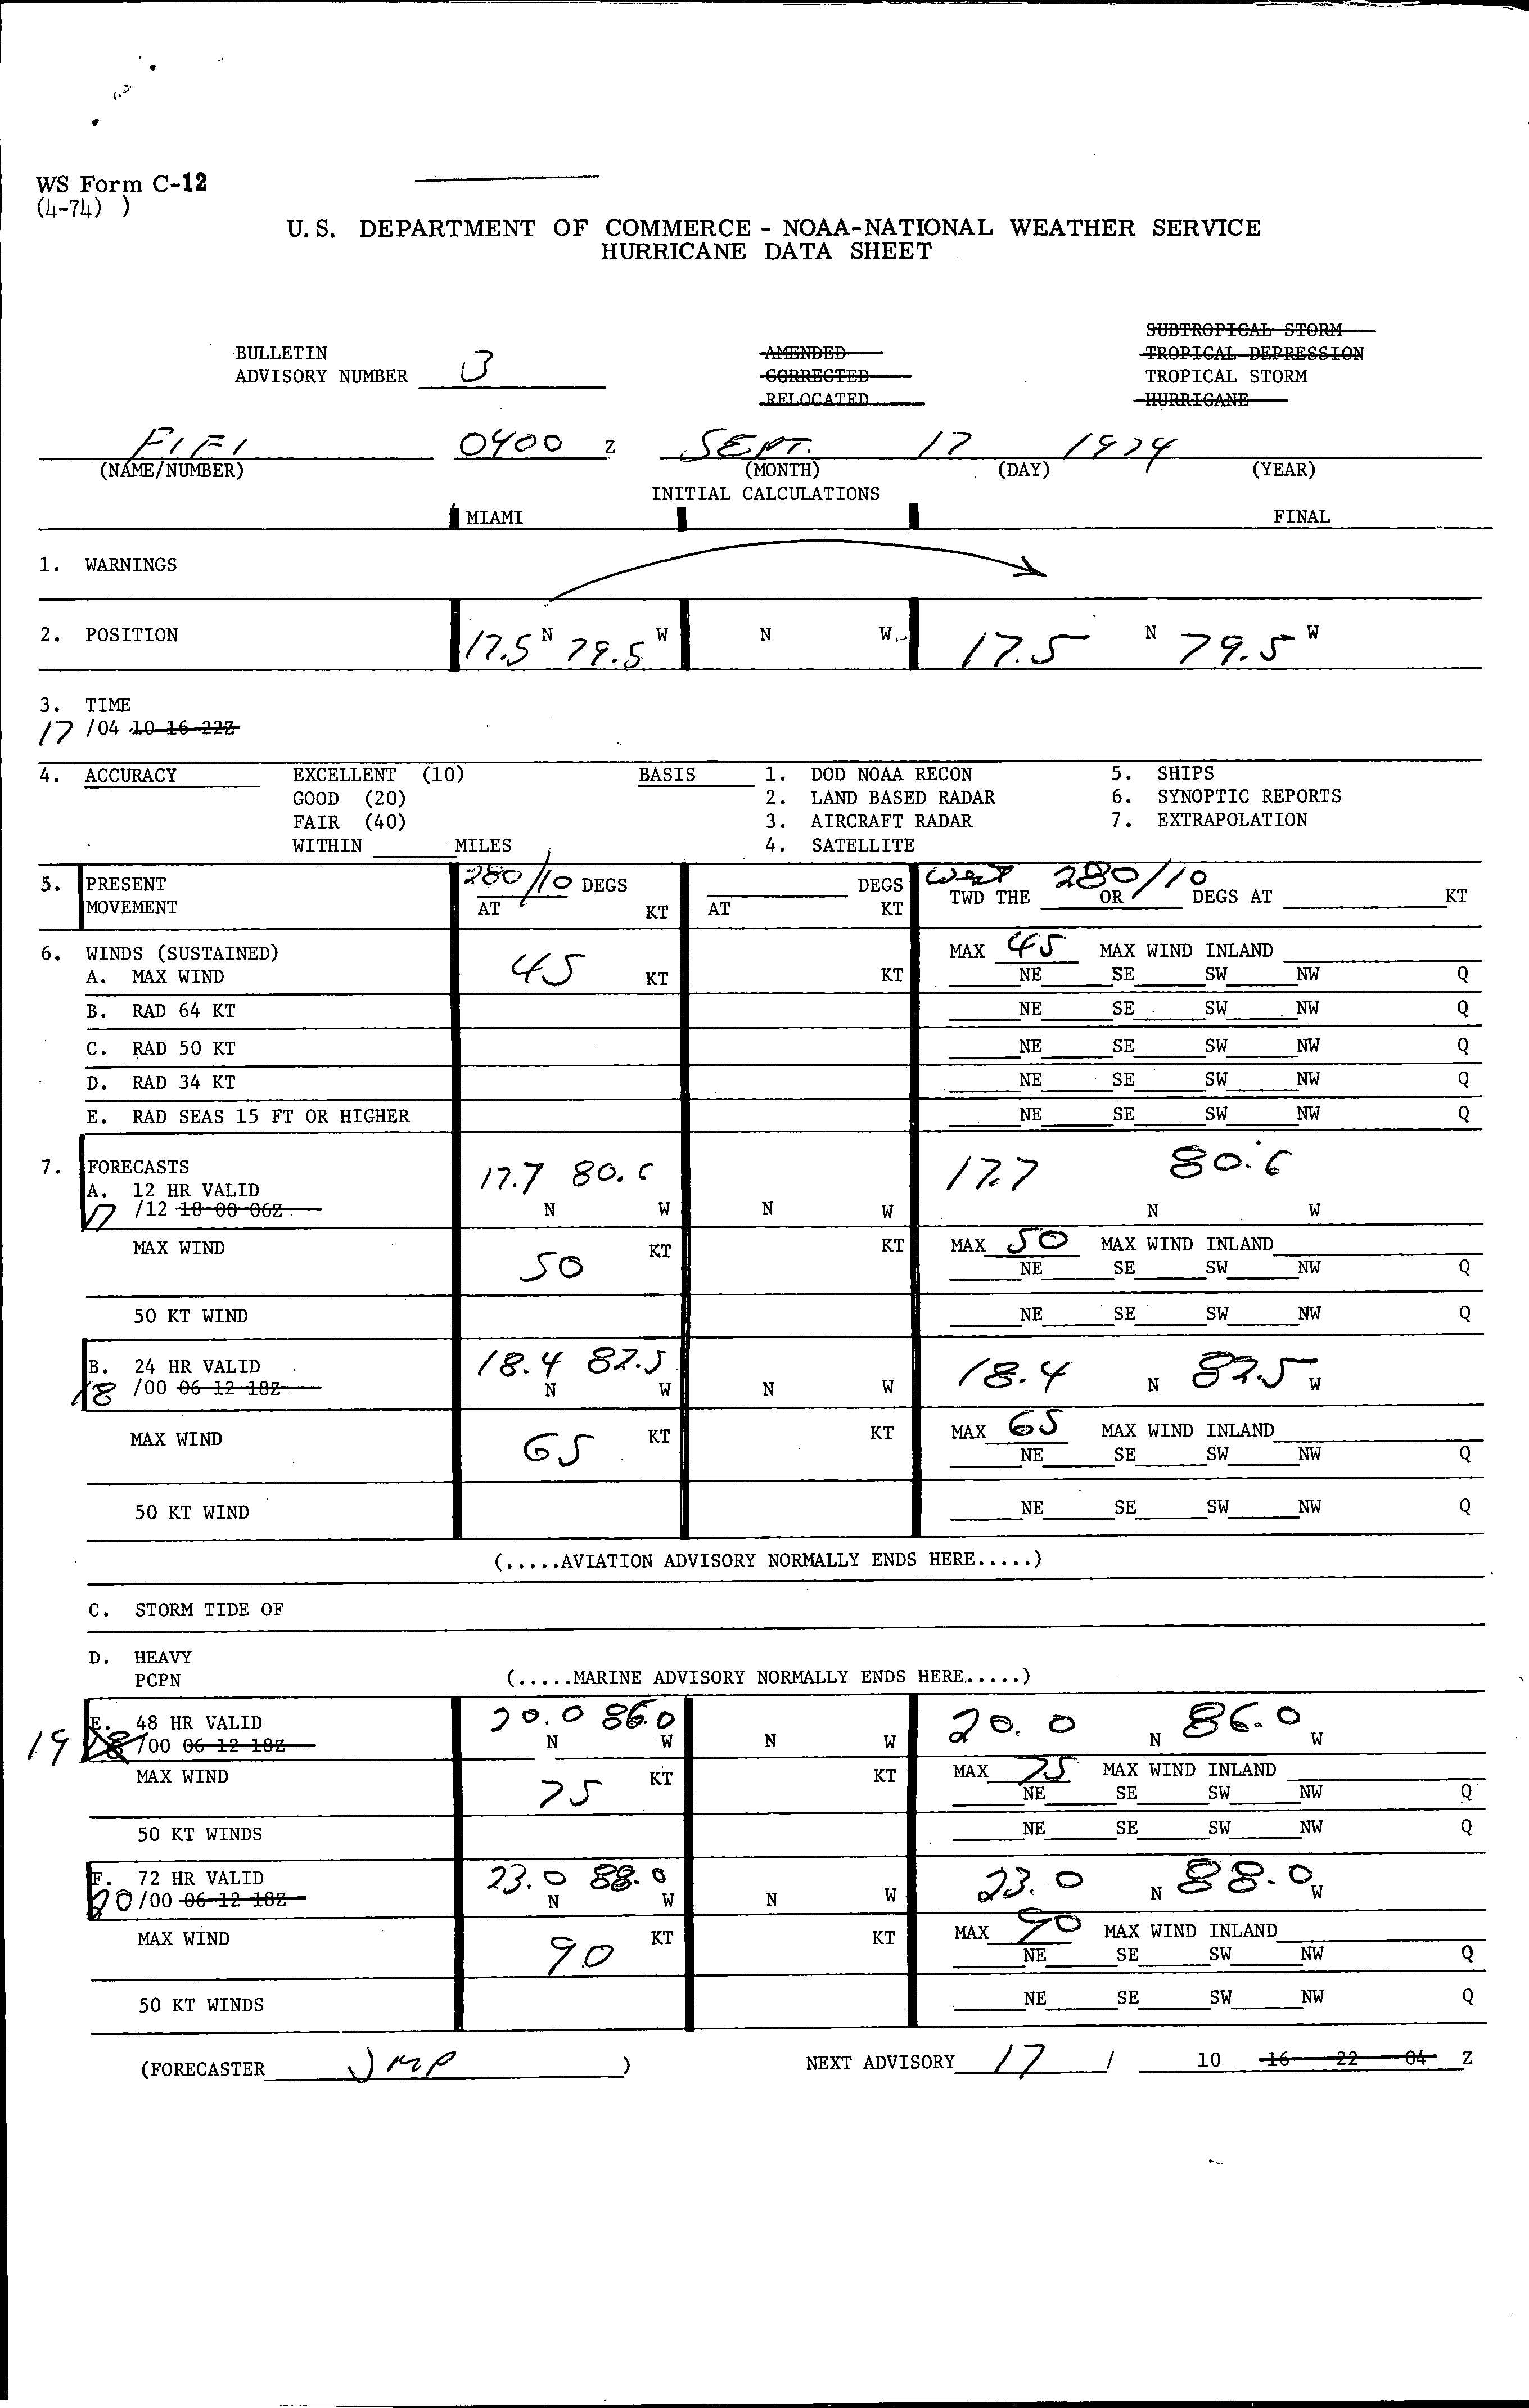 WS Form C-12
(4-74) )
U.S. DEPARTMENT OF COMMERCE - NOAA-NATIONAL WEATHER SERVICE
HURRICANE DATA SHEET
SUBTROPICAL STORM
BULLETIN AMENDED TROPICAL DEPRESSION
ADVISORY NUMBER 3 CORRECTED TROPICAL STORM
RELOCATED HURRICANE
FIFI 0400 Z SEPT. 17 1974
(NAME/NUMBER) (MONTH) (DAY) (YEAR)
INITIAL CALCULATIONS
MIAMI FINAL
1. WARNINGS
2. POSITION 17.5 N 79.5 W N W 17.5 N 79.5 W
3. TIME
17 /04 10 16 22Z
4. ACCURACY EXCELLENT (10) BASIS 1. DOD NOAA RECON 5. SHIPS
GOOD (20) 2. LAND BASED RADAR 6. SYNOPTIC REPORTS
FAIR (40) 3. AIRCRAFT RADAR 7. EXTRAPOLATION
WITHIN MILES 4. SATELLITE
5. PRESENT 280/10 DEGS DEGS West 280/10
MOVEMENT AT KT AT KT TWD THE OR DEGS AT KT
6. WINDS (SUSTAINED) MAX 45 MAX WIND INLAND
A. MAX WIND 45 KT KT NE SE SW NW Q
B. RAD 64 KT NE SE SW NW Q
C. RAD 50 KT NE SE SW NW Q
D. RAD 34 KT NE SE SW NW Q
E. RAD SEAS 15 FT OR HIGHER NE SE SW NW Q
7. FORECASTS 17.7 80.6 17.7 80.6
A. 12 HR VALID
17 /12 18 00 06Z N W N W N W
MAX WIND 50 KT KT MAX 50 MAX WIND INLAND
NE SE SW NW Q
50 KT WIND NE SE SW NW Q
B. 24 HR VALID 18.4 82.5 18.4 N 82.5 W
18 /00 06 12 18Z N W N W
MAX WIND 65 KT KT MAX 65 MAX WIND INLAND
NE SE SW NW Q
50 KT WIND NE SE SW NW Q
(.....AVIATION ADVISORY NORMALLY ENDS HERE.....)
C. STORM TIDE OF
D. HEAVY
PCPN (.....MARINE ADVISORY NORMALLY ENDS HERE.....)
E. 48 HR VALID 20.0 86.0 20.0 N 86.0 W
19 18 /00 06 12 18Z N W N W
MAX WIND 75 KT KT MAX 75 MAX WIND INLAND
NE SE SW NW Q
50 KT WINDS NE SE SW NW Q
F. 72 HR VALID 23.0 88.0 23.0 N 88.0 W
20 /00 06 12 18Z N W N W
MAX WIND 90 KT KT MAX 90 MAX WIND INLAND
NE SE SW NW Q
50 KT WINDS NE SE SW NW Q
(FORECASTER JMP ) NEXT ADVISORY 17 / 10 16 22 04 Z